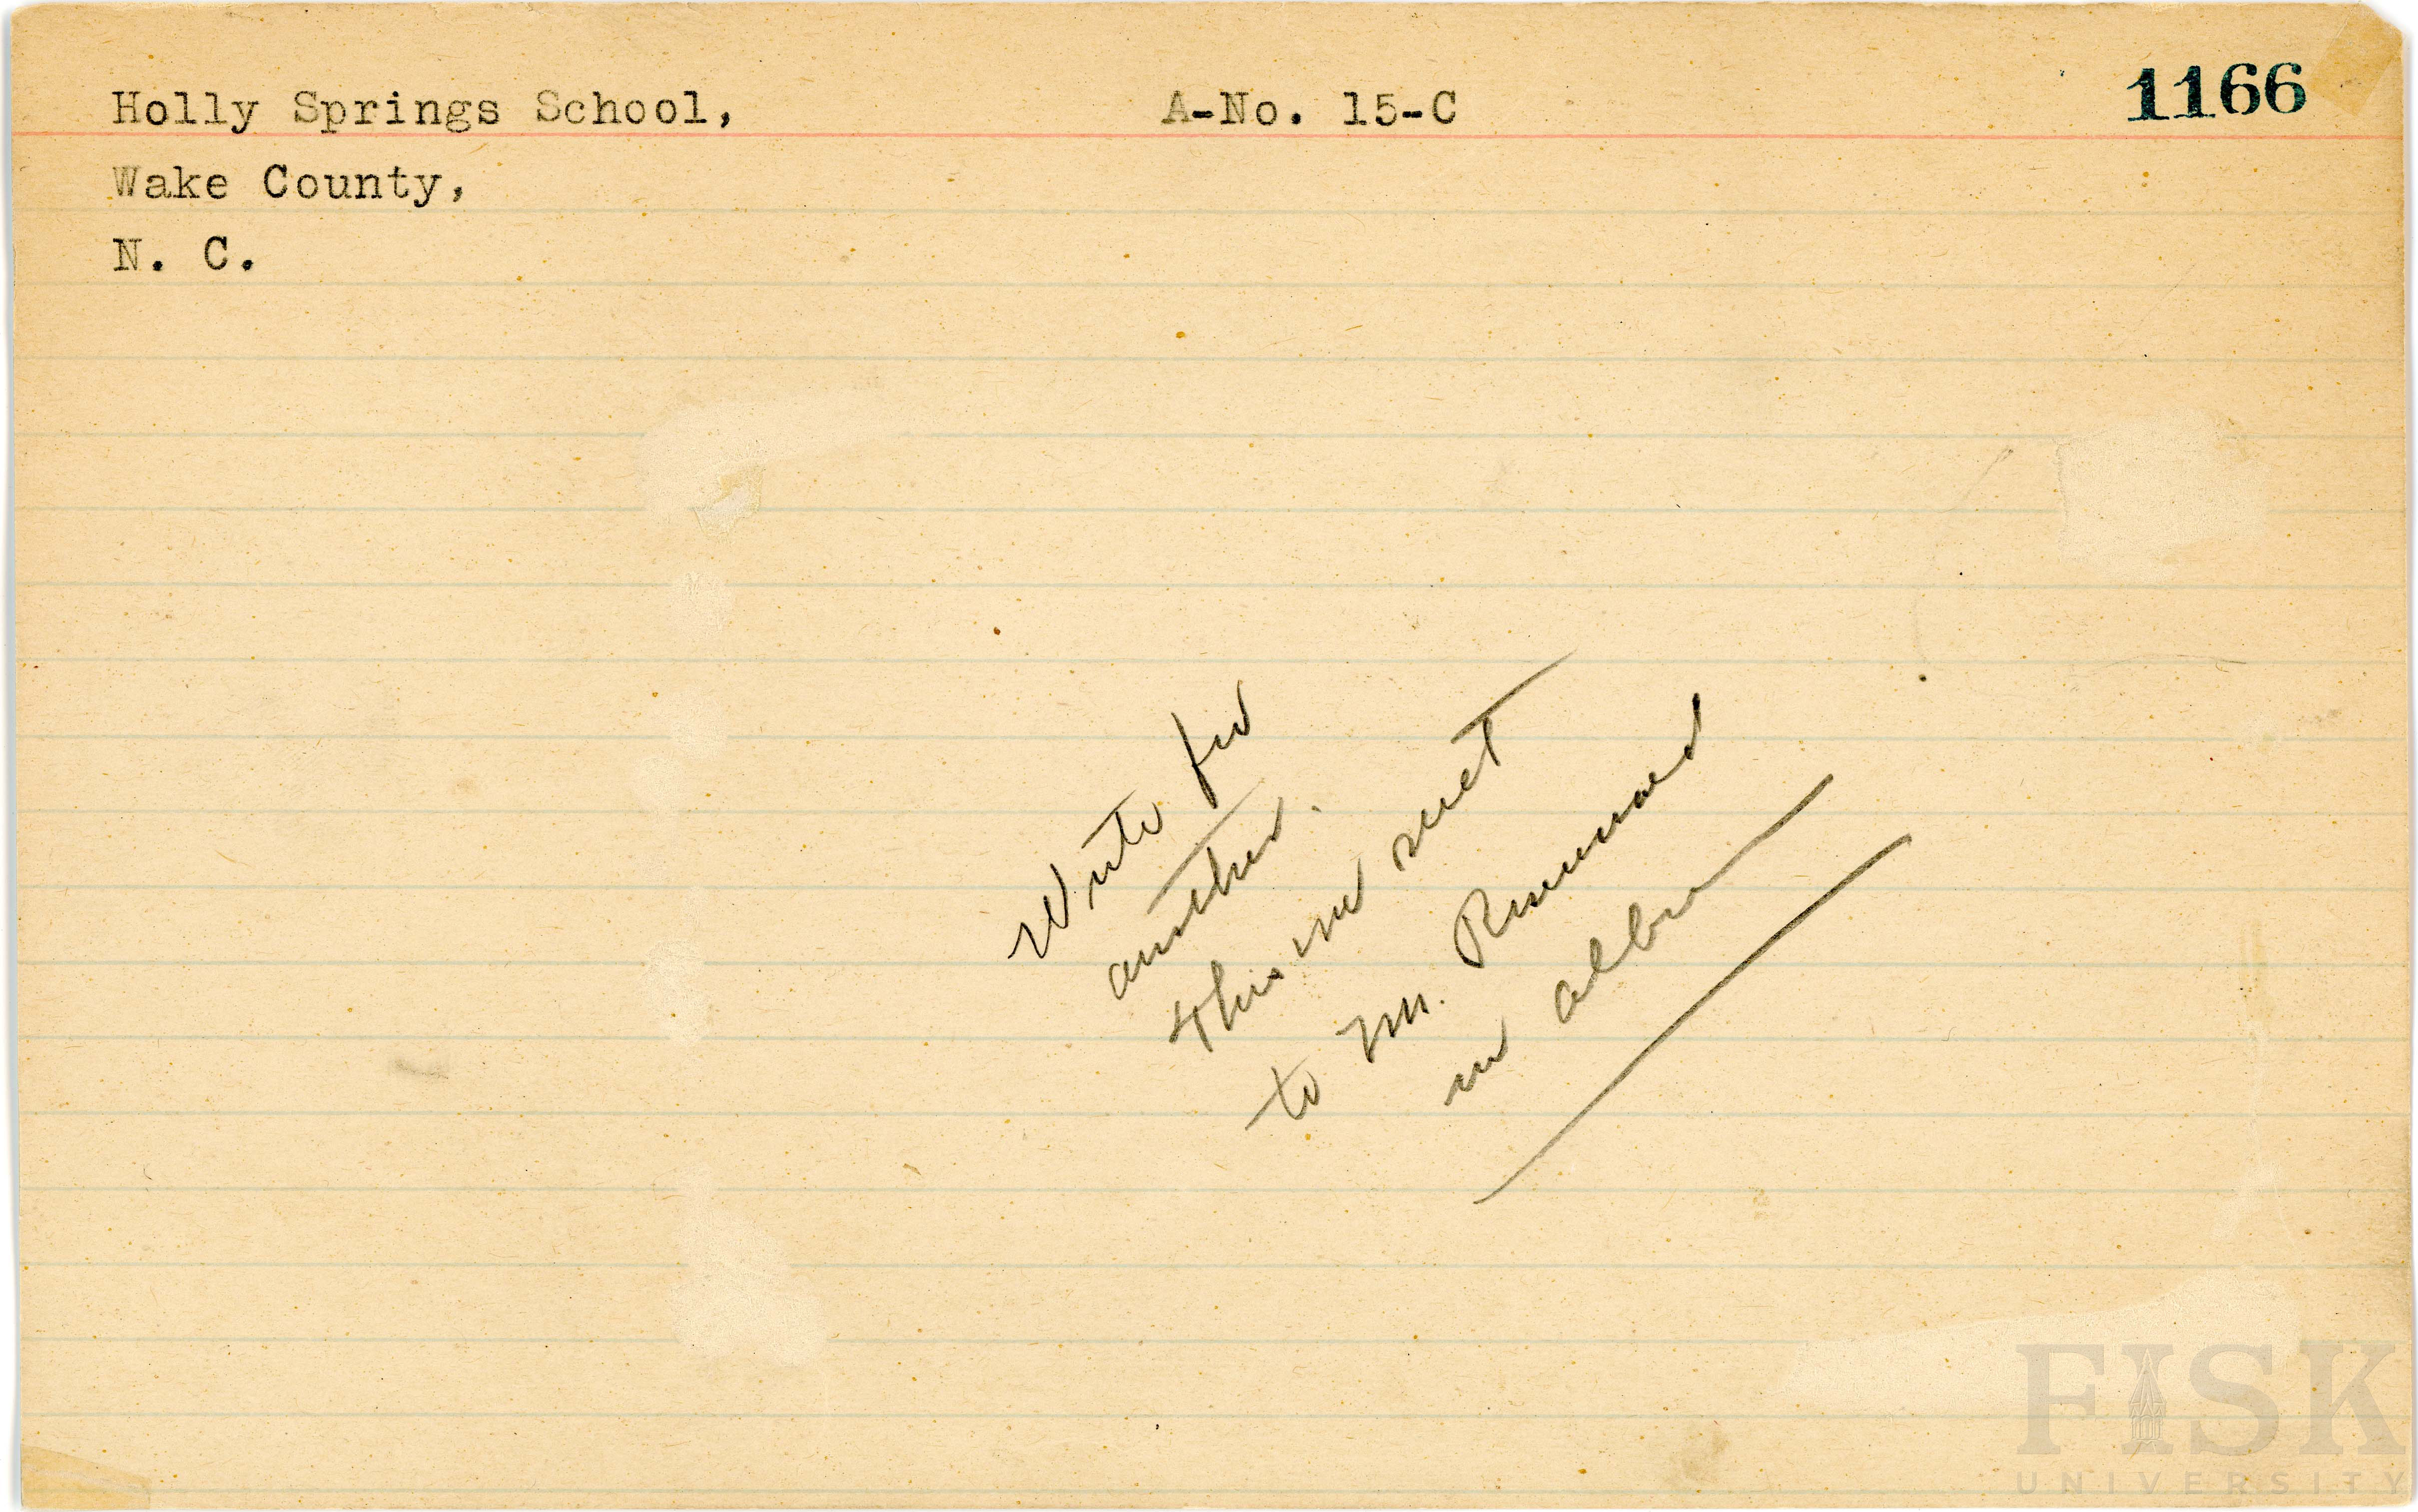 Holly Springs School,
A-No. 15-C
1166
Wake County,
N. C.
Write for
another.
This one sent
to Mr. Rosenwald
in album
FISK
UNIVERSITY